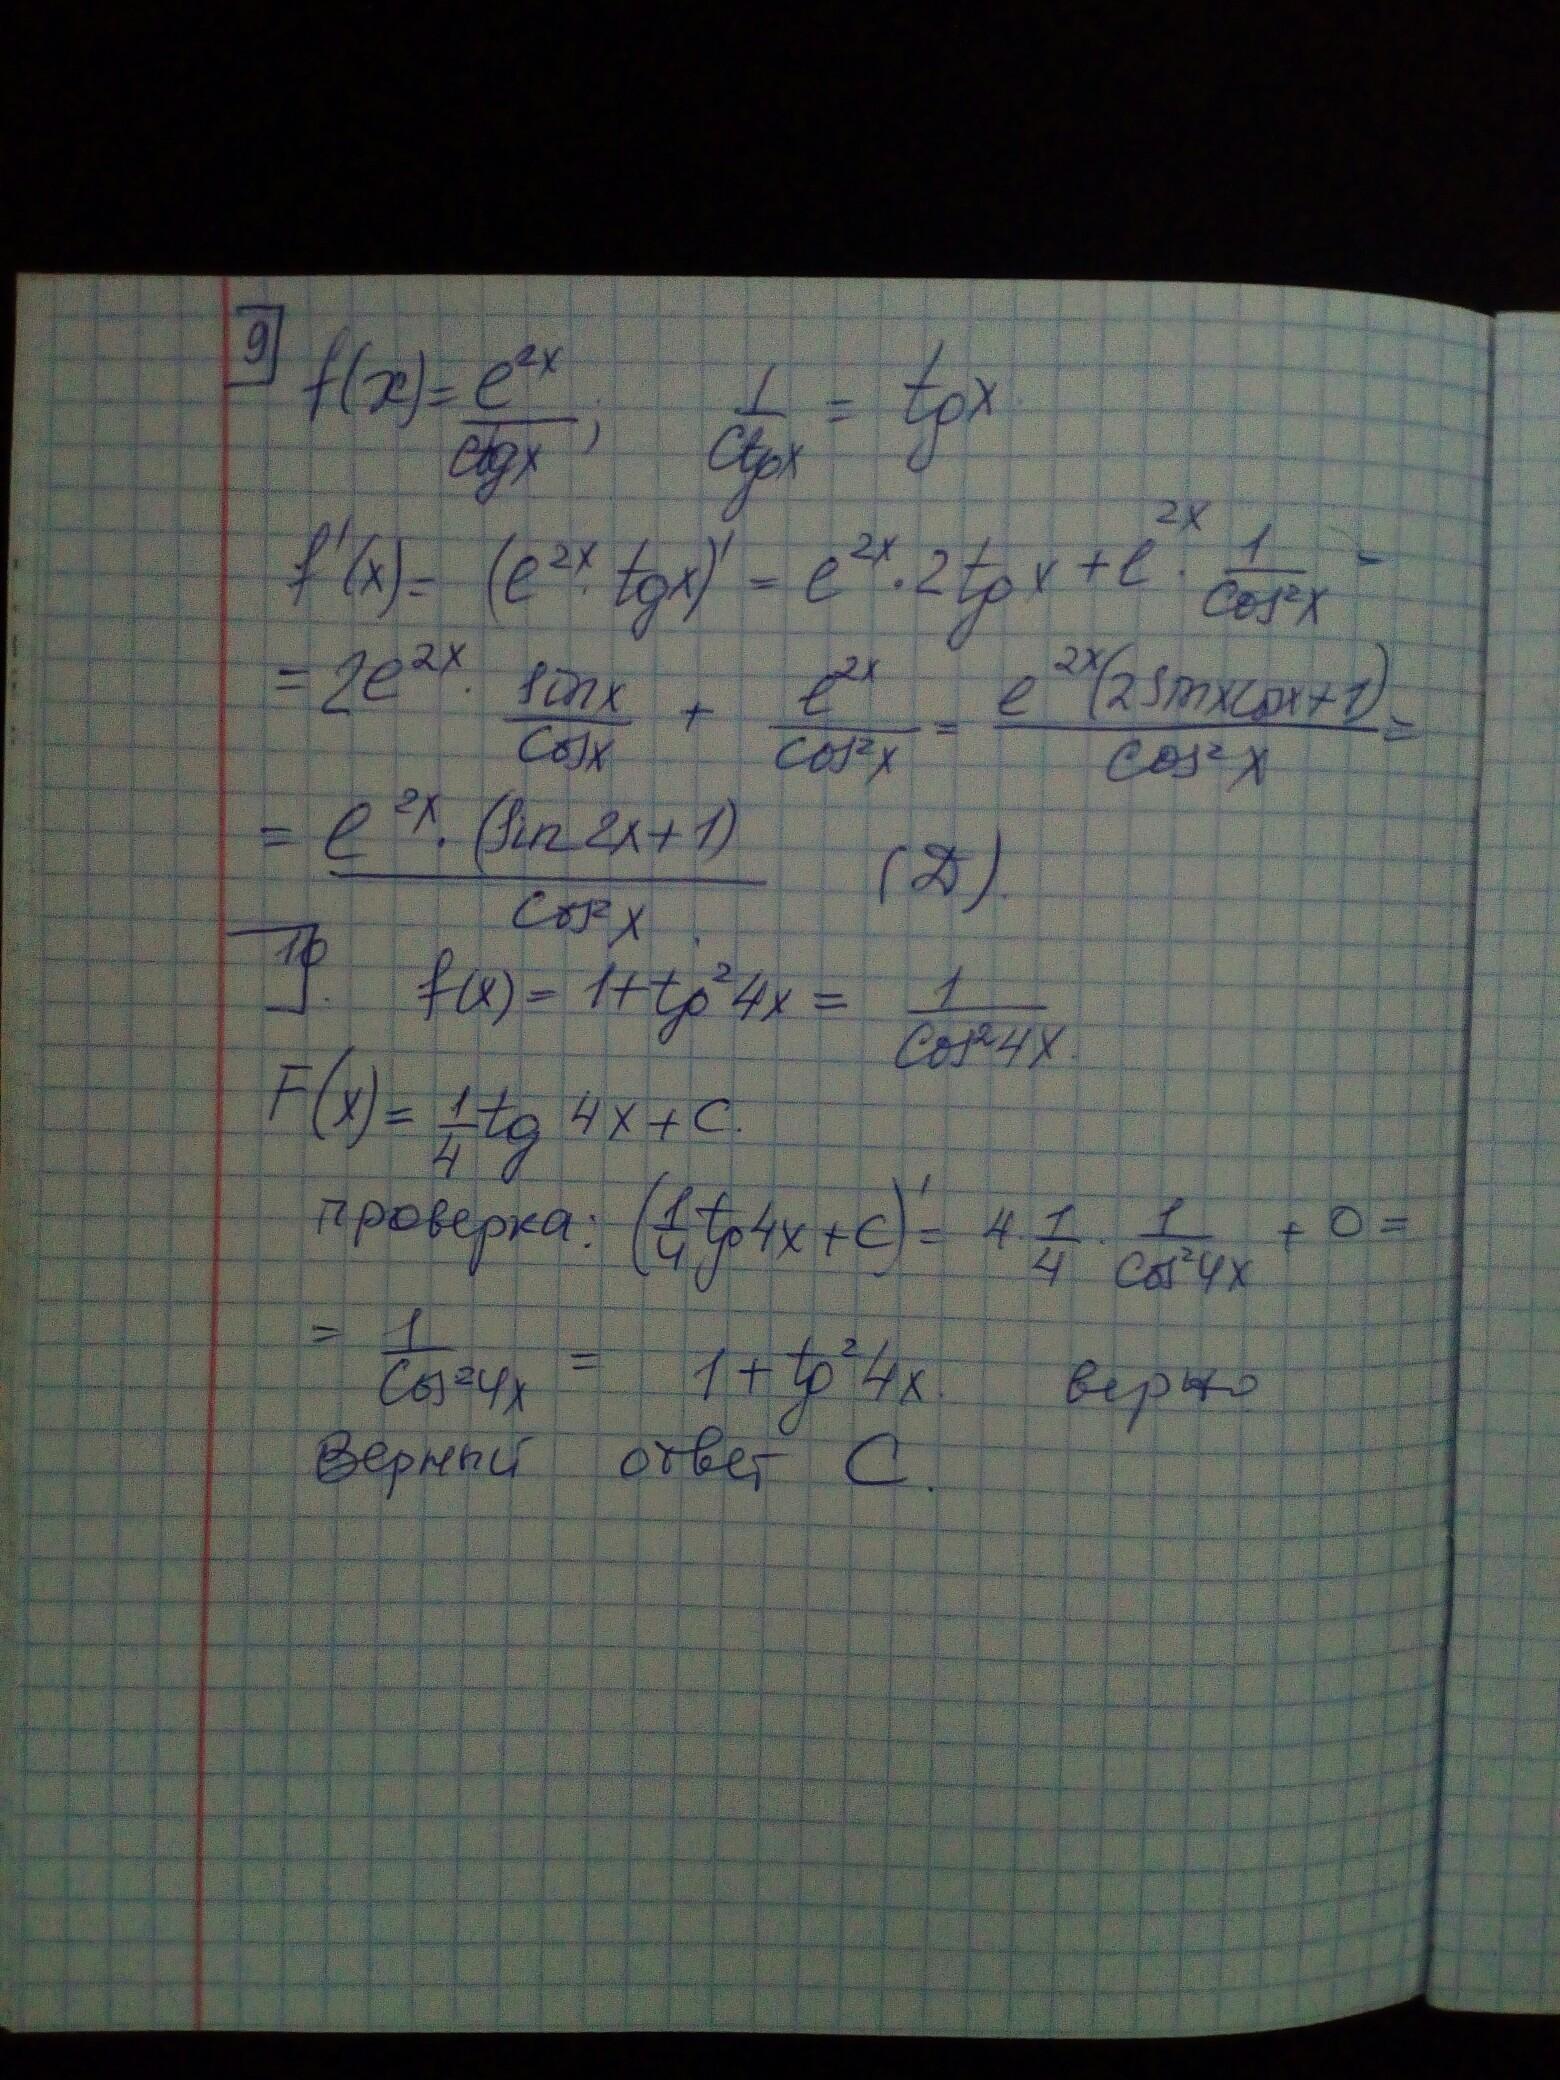 9] f(x) = e^{2x}/ctgx ; 1/ctgx = tgx
f'(x) = (e^{2x} · tgx)' = e^{2x} · 2tgx + e^{2x} · 1/cos²x =
= 2e^{2x} · sinx/cosx + e^{2x}/cos²x = e^{2x}(2sinxcosx+1)/cos²x =
= e^{2x} · (sin2x+1)/cos²x (D).
10]. f(x) = 1+tg²4x = 1/cos²4x.
F(x) = 1/4 tg 4x + C.
проверка: (1/4 tg4x + C)' = 4 · 1/4 · 1/cos²4x + 0 =
= 1/cos²4x = 1 + tg²4x. верно
Верный ответ C.